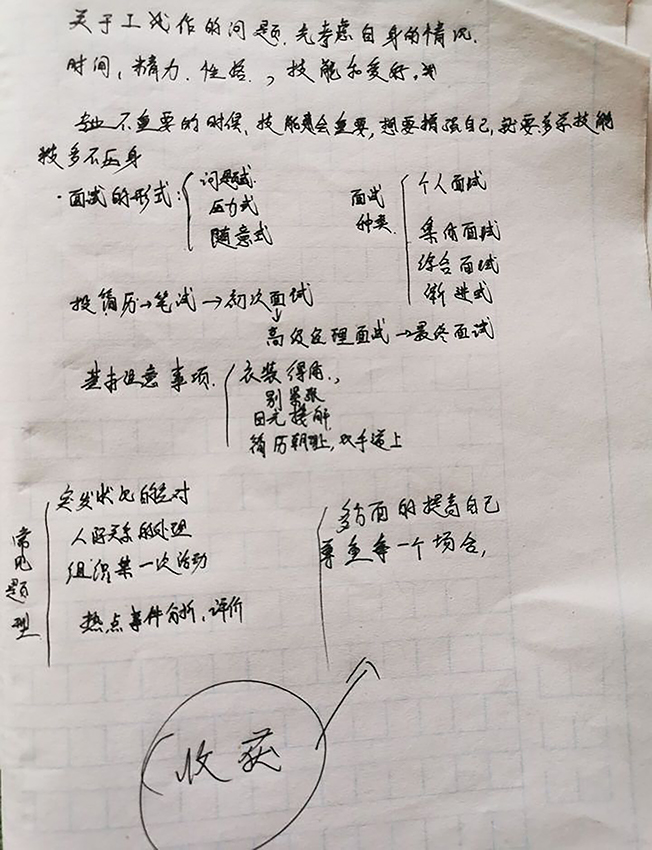 关于工作的问题.先考虑自身的情况.
时间、精力.性格.,技能和爱好.
专业不重要的时候、技能会重要,想要增强自己,就要多学技能
技多不压身
·面试的形式:
问题式.
压力式
随意式
面试
种类.
个人面试
集体面试
综合面试
渐进式
投简历→笔试→初次面试
↓
高级经理面试→最终面试
基本注意事项.
衣装得
别紧张
目光接触
简历朝上,双手递上
常见题型
突发状况的应对
人际关系的处理
组织某一次活动
热点事件分析、评价
多方面的提高自己
尊重每一个场合,
收获